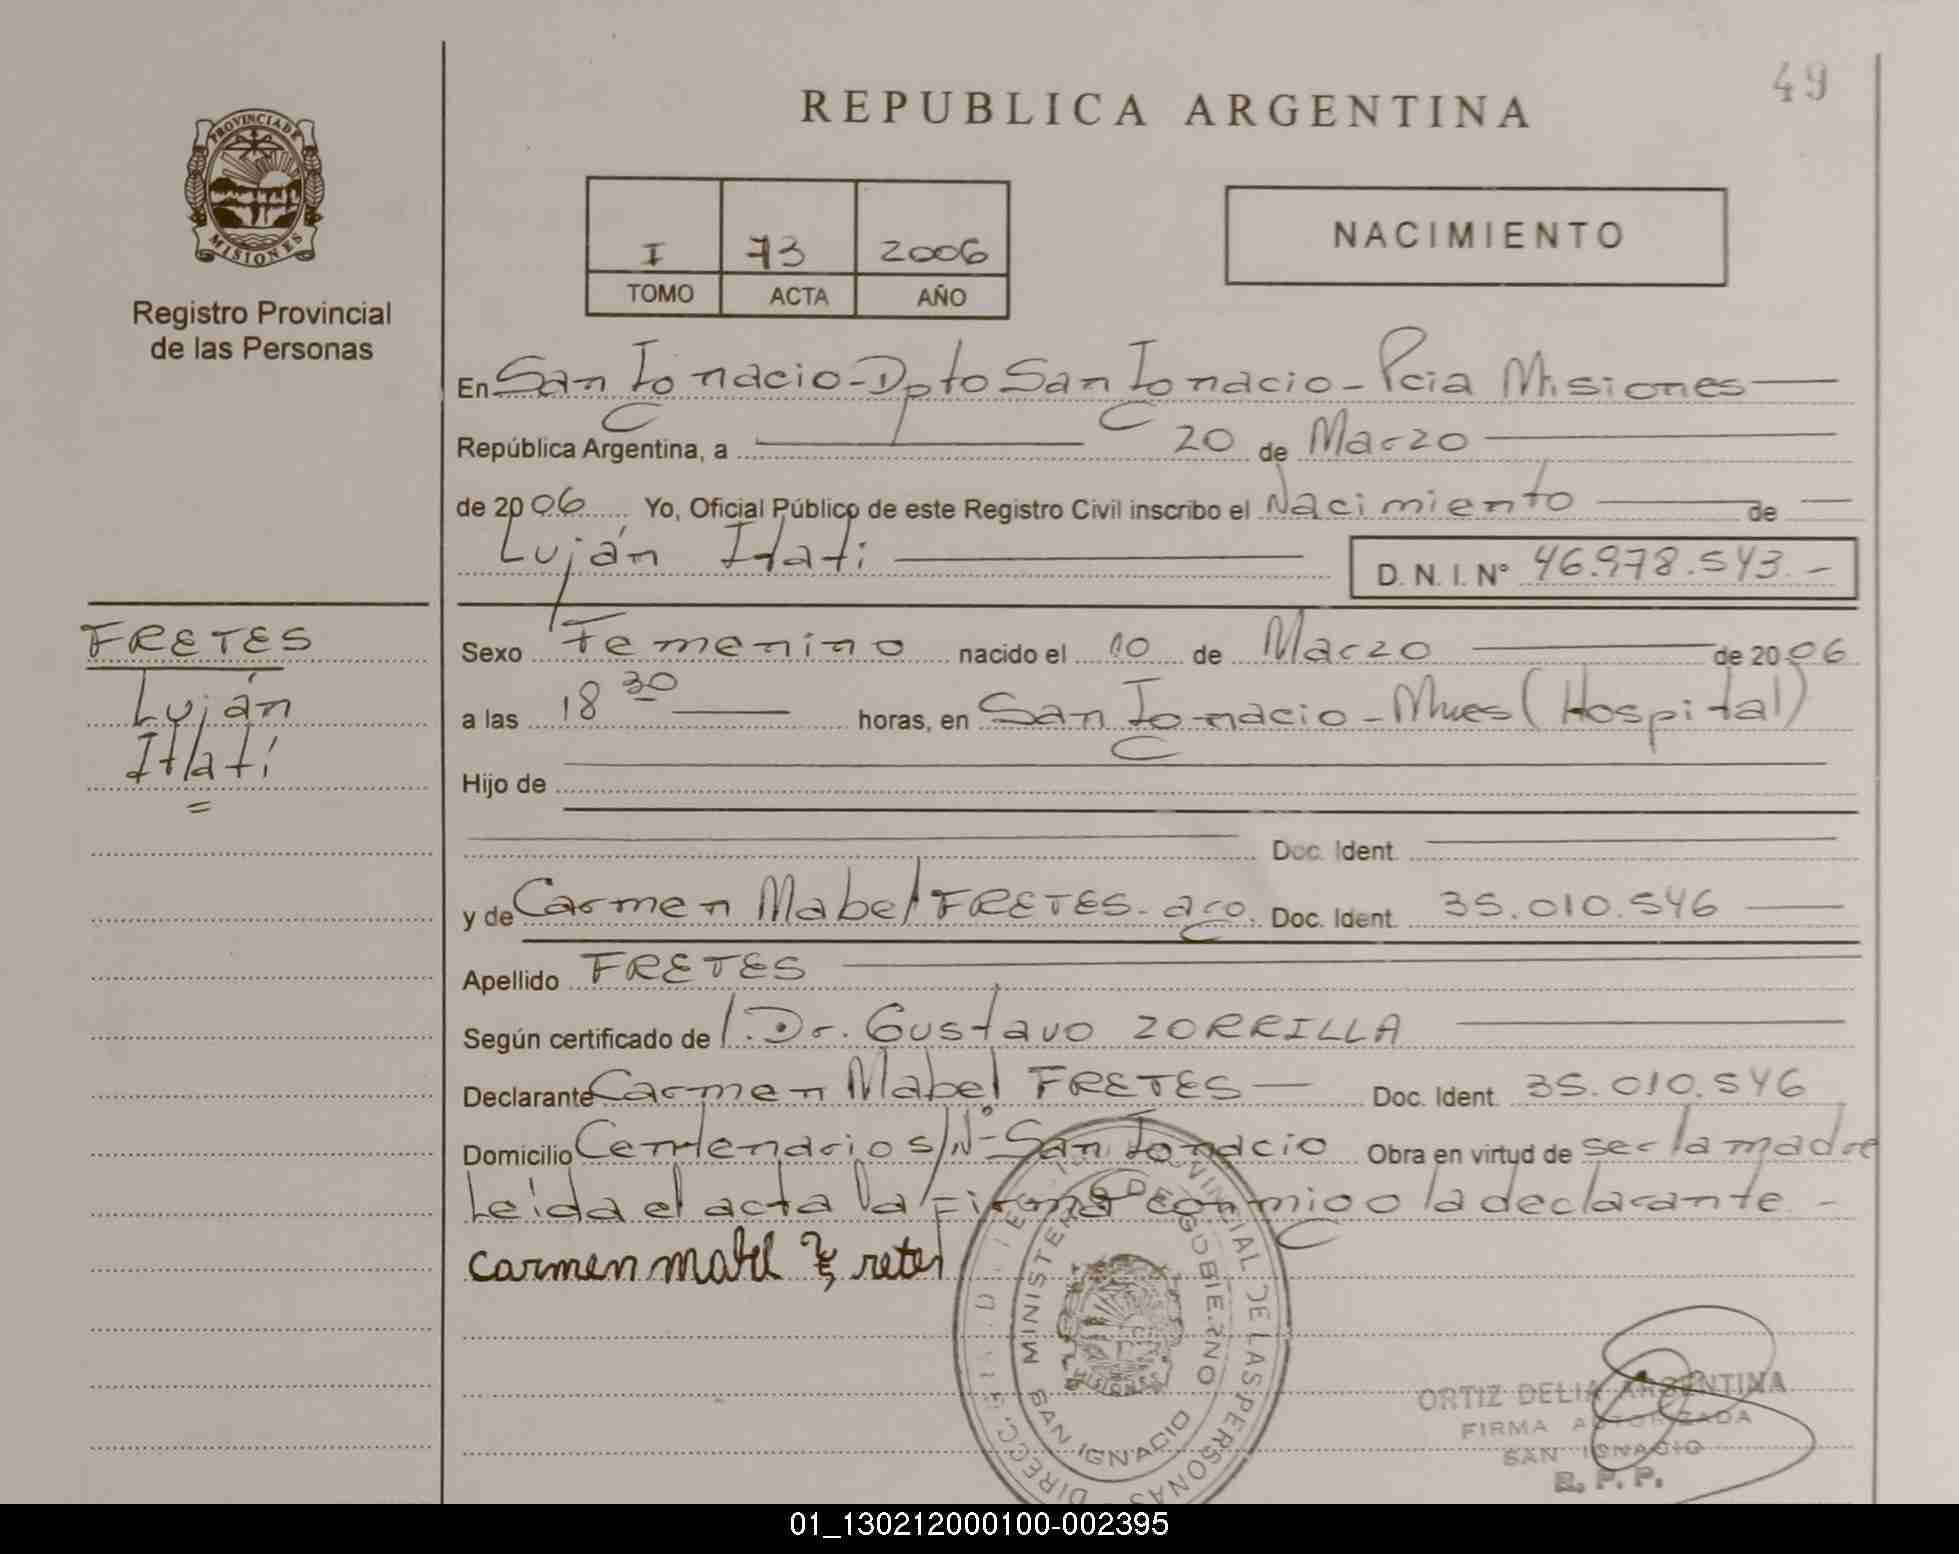 49
REPUBLICA ARGENTINA
PROVINCIA DE
MISIONES
Registro Provincial
de las Personas
I 73 2006
TOMO ACTA AÑO
NACIMIENTO
En San Ignacio - Dpto San Ignacio - Pcia Misiones
República Argentina, a 20 de Marzo
de 2006 Yo, Oficial Público de este Registro Civil inscribo el Nacimiento de
Luján Itatí
D. N. I. N° 46.978.543.-
FRETES
Luján
Itatí
=
Sexo Femenino nacido el 10 de Marzo de 2006
a las 18 30 horas, en San Ignacio - Mnes (Hospital)
Hijo de
Doc. Ident.
y de Carmen Mabel FRETES - arg. Doc. Ident. 35.010.546
Apellido FRETES
Según certificado de /. Dr. Gustavo ZORRILLA
Declarante Carmen Mabel FRETES - Doc. Ident. 35.010.546
Domicilio Centenario s/Nº San Ignacio Obra en virtud de ser la madre
Leída el acta la firma conmigo la declarante -
Carmen Mabel Fretes
MINISTERIO DE GOBIERNO
SAN IGNACIO
PROVINCIAL DE LAS PERSONAS
ORTIZ DELIA ARGENTINA
FIRMA AUTORIZADA
SAN IGNACIO
R. P. P.
01_130212000100-002395